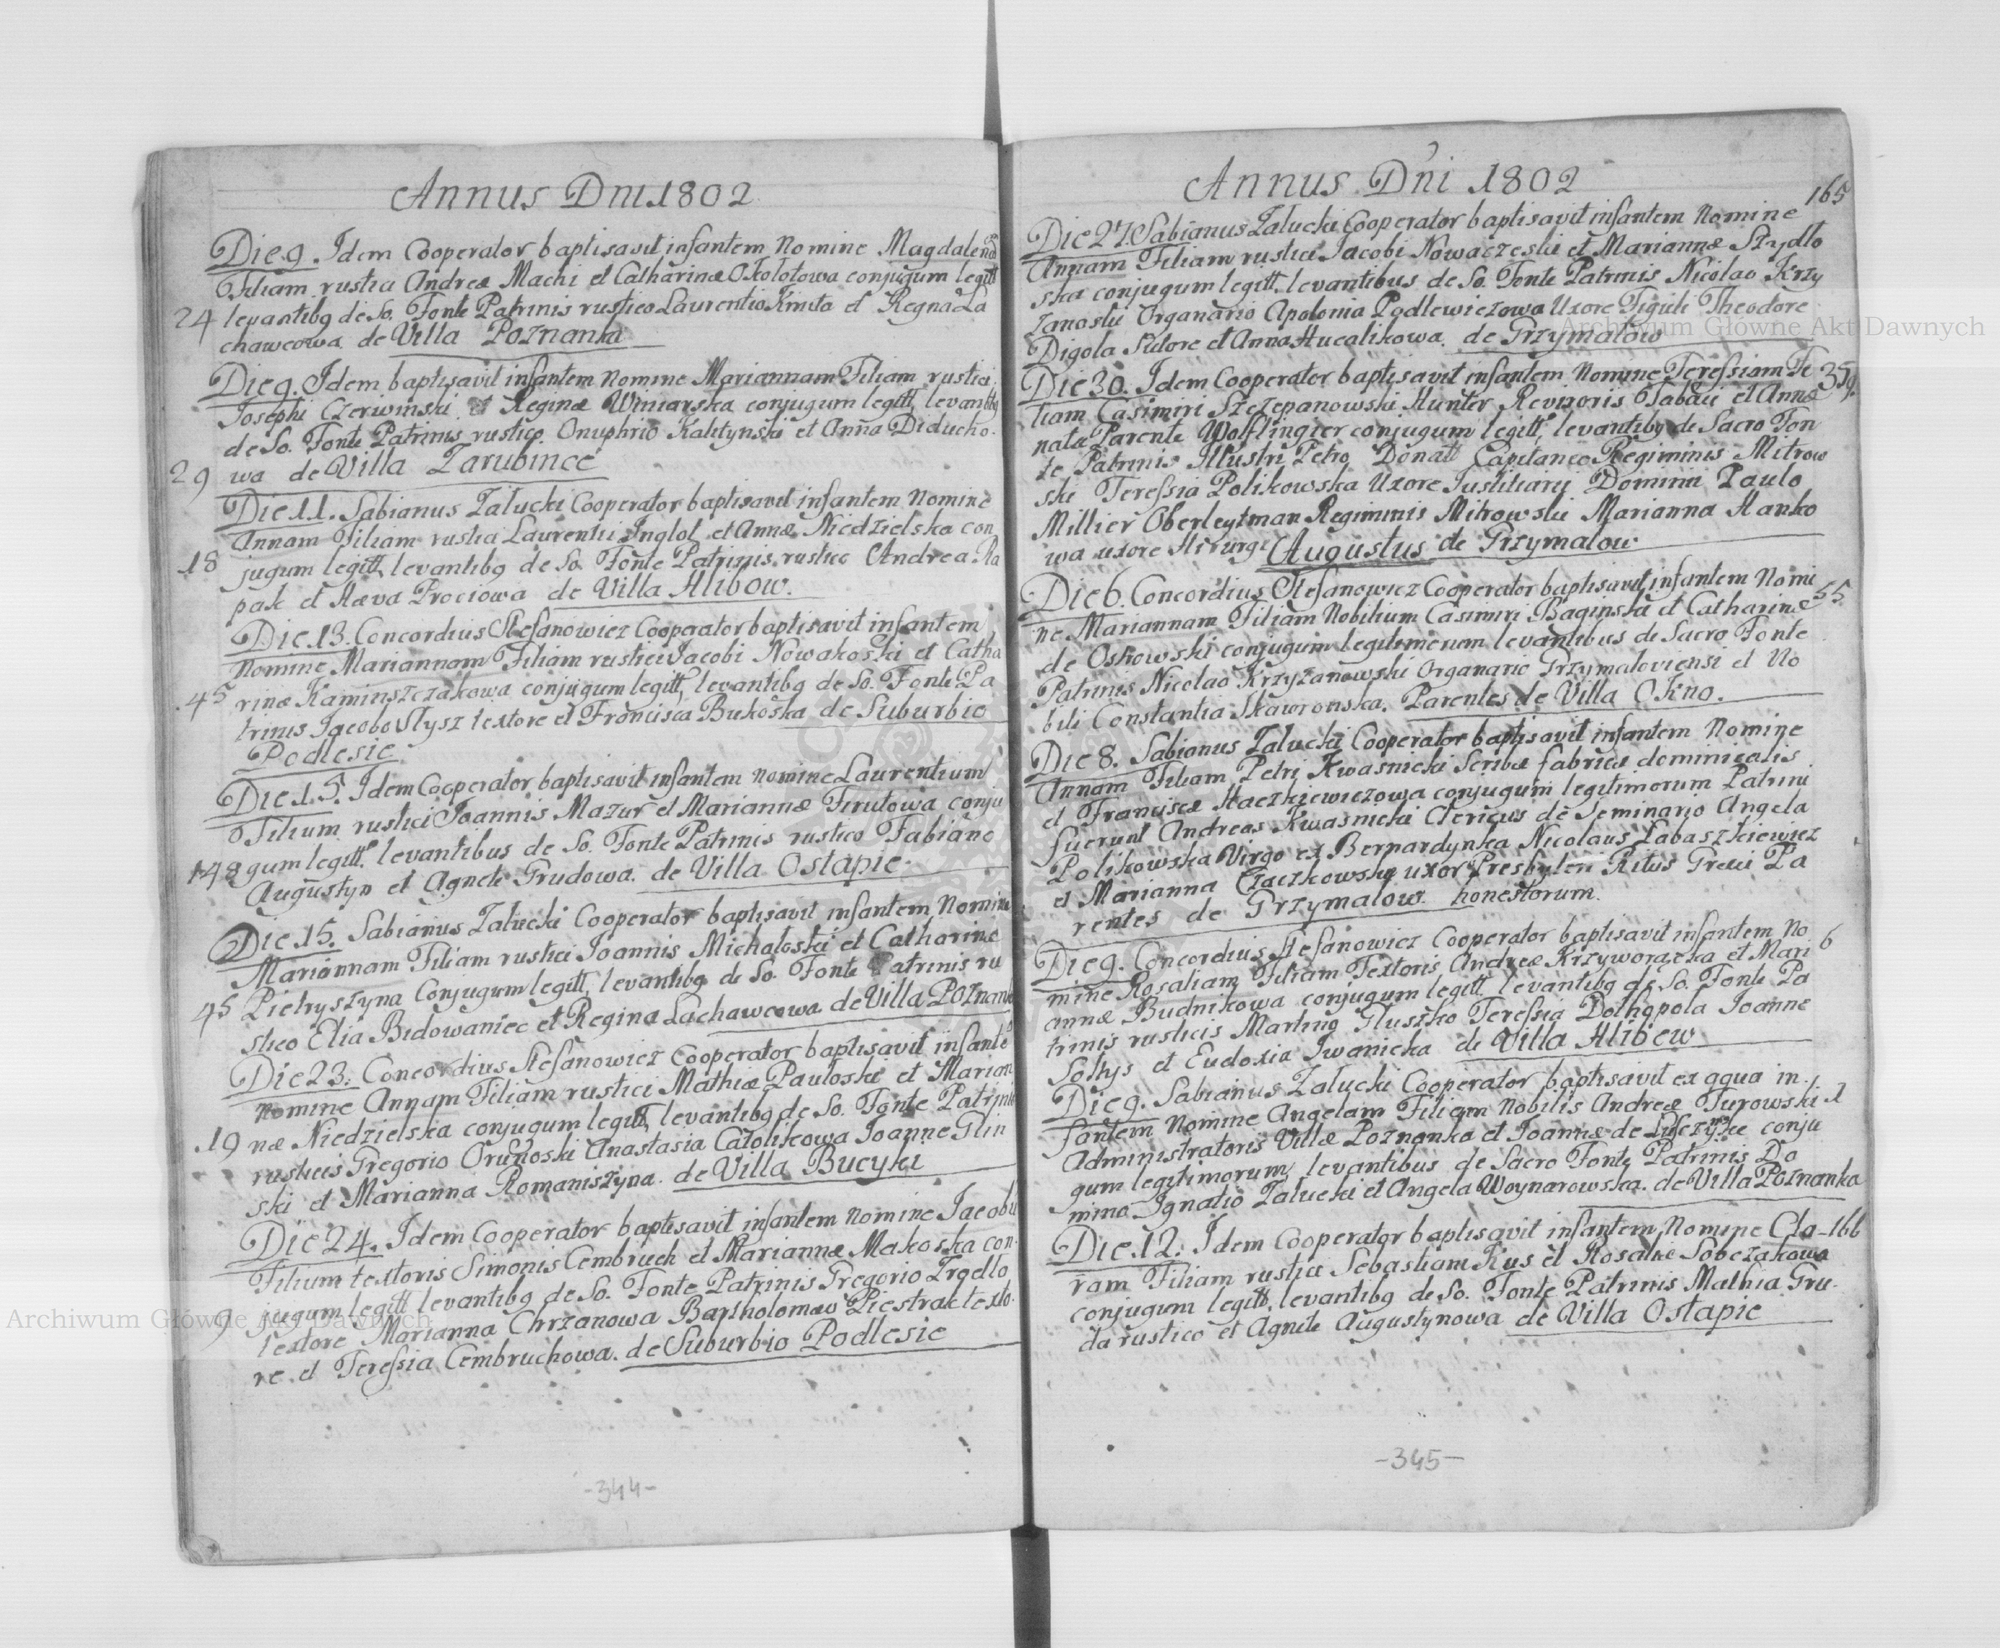 Annus Dni 1802
Die 9. Idem Cooperator baptisavit infantem Nomine Magdalenam
Filiam rustici Andreæ Machi et Catharinæ Okolotowa conjugum legitt
24 levantibg de So. Fonte Patrinis rustico Laurentio Kmita et Regina La
chawcowa de Villa Poznanka
Die 9. Idem baptisavit infantem Nomine Mariannam Filiam rustici
Josephi Czerwinski et Reginæ Winiarska conjugum legitt, levantibg
de So. Fonte Patrinis rustico Onuphrio Kaletynski et Anna Diducho-
29 wa de Villa Zarubince
Die 11. Sabianus Zalucki Cooperator baptisavit infantem Nomine
Annam Filiam rustici Laurentii Inglol et Annæ Niedzielska con
18 jugum legitt, levantibg de So. Fonte Patrinis rustico Andrea Ra
pak et Hæva Prociowa de Villa Hlibow.
Die 13. Concordius Stefanowicz Cooperator baptisavit infantem
Nomine Mariannam Filiam rustici Jacobi Nowakoski et Catha
45 rinæ Kaminszczakowa conjugum legitt, levantibg de So. Fonte Pa
trinis Jacobo Slysz textore et Francisca Bukoska de Suburbio
Podlesie
Die 15. Idem Cooperator baptisavit infantem nomine Laurentium
Filium rustici Joannis Mazur et Mariannæ Firutowa conju
148 gum legitt. levantibus de So. Fonte Patrinis rustico Fabiano
Augustyn et Agnete Grudowa. de Villa Ostapie.
Die 15. Sabianus Zalucki Cooperator baptisavit infantem Nomine
Mariannam Filiam rustici Joannis Michaloski et Catharinæ
45 Pietryszyna Conjugum legitt, levantibg de So. Fonte Patrinis ru
stico Elia Bidowaniec et Regina Lachawcowa de Villa Poznanka
Die 23. Concordius Stefanowicz Cooperator baptisavit infante
nomine Annam Filiam rustici Mathiæ Pauloski et Marian
19 næ Niedzielska conjugum legitt, levantibg de So. Fonte Patrinis
rusticis Gregorio Orunoski Anastasia Catolikowa Joanne Glin
ski et Marianna Romaniszyna. de Villa Bucyki
Die 24. Idem Cooperator baptisavit infantem Nomine Jacobu
Filium textoris Simonis Cembruch et Mariannæ Makoska con-
9 jugum legitt levantibg de So. Fonte Patrinis Gregorio Zrgello
textore Marianna Chrzanowa Bartholomæo Piestrak texto-
re et Teressia Cembruchowa. de Suburbio Podlesie
-344-
Annus Dni 1802
165
Die 27. Sabianus Zalucki Cooperator baptisavit infantem Nomine
Annam Filiam rustici Jacobi Nowaczeski et Mariannæ Szydlo
ska conjugum legitt, levantibus de So. Fonte Patrinis Nicolao Krzy
zanoski Organario Apolonia Podlewiczowa Uxore Figuli Theodore
Digola Sutore et Anna Hucalikowa. de Grzymalow
Die 30. Idem Cooperator baptisavit infantem Nomine Teressiam Fi 359
liam Casimiri Szczepanowski Hunter Revisoris Tabac et Annæ
natæ Parente Wolflingier conjugum legitt, levantibg de Sacro Fon
te Patrinis Illustri Petro Donatt Capitaneo Regiminis Mitrow
ski Teressia Polikowska Uxore Justitiarii Dominii Paulo
Millier Oberleytman Regiminis Mitrowski Marianna Hanko
wa uxore Hirurgi Augustus de Grzymalow
Die 6. Concordius Stefanowicz Cooperator baptisavit infantem Nomi 55
ne Mariannam Filiam Nobilium Casimiri Baginski et Catharinæ
de Ostrowski conjugum legitimorum levantibus de Sacro Fonte
Patrinis Nicolao Krzyzanowski Organario Grzymaloviensi et No
bili Constantia Skawronska. Parentes de Villa Okno.
Die 8. Sabianus Zalucki Cooperator baptisavit infantem Nomine
Annam Filiam Petri Kwasnicki Scribæ fabricæ dominicalis
et Franciscæ Haczkiewiczowa conjugum legitimorum Patrini
fuerunt Andreas Kwasnicki Clericus de Seminario Angela
Polikowska Virgo ex Bernardynka Nicolaus Labaszkiewicz
et Marianna Czaczkowska uxor Presbyteri Ritus Græci Pa
rentes de Grzymalow honestorum.
Die 9. Concordius Stefanowicz Cooperator baptisavit infantem No 6
mine Rosaliam Filiam Textoris Andreæ Krzyworączka et Mari
annæ Budnikowa conjugum legitt levantibg de So. Fonte Pa
trinis rusticis Martino Gluszko Teressia Dolhopola Joanne
Soltys et Eudoxia Iwanicka de Villa Hlibow
Die 9. Sabianus Zalucki Cooperator baptisavit ex aqua in- 1
fantem Nomine Angelam Filiam Nobilis Andreæ Turowski
Administratoris Villæ Poznanka et Joannæ de conju
gum legitimorum, levantibus de Sacro Fonte Patrinis Do
mino Ignatio Zalucki et Angela Woynarowska. de Villa Poznanka
Die 12. Idem Cooperator baptisavit infantem Nomine Cla- 166
ram Filiam rustici Sebastiani Kus et Rosaliæ Sobczakowa
conjugum legitt, levantibg de So. Fonte Patrinis Mathia Gru-
da rustico et Agnete Augustynowa de Villa Ostapie
-345-
Archiwum Główne Akt Dawnych
Archiwum Główne Akt Dawnych